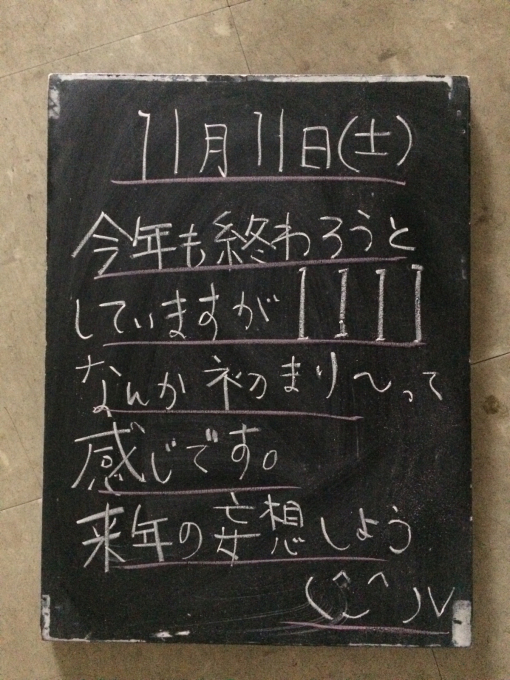 11月11日(土)
今年も終わろうと
していますが1111
なんか初まり〜って
感じです。
来年の妄想しよう
(^_^)v